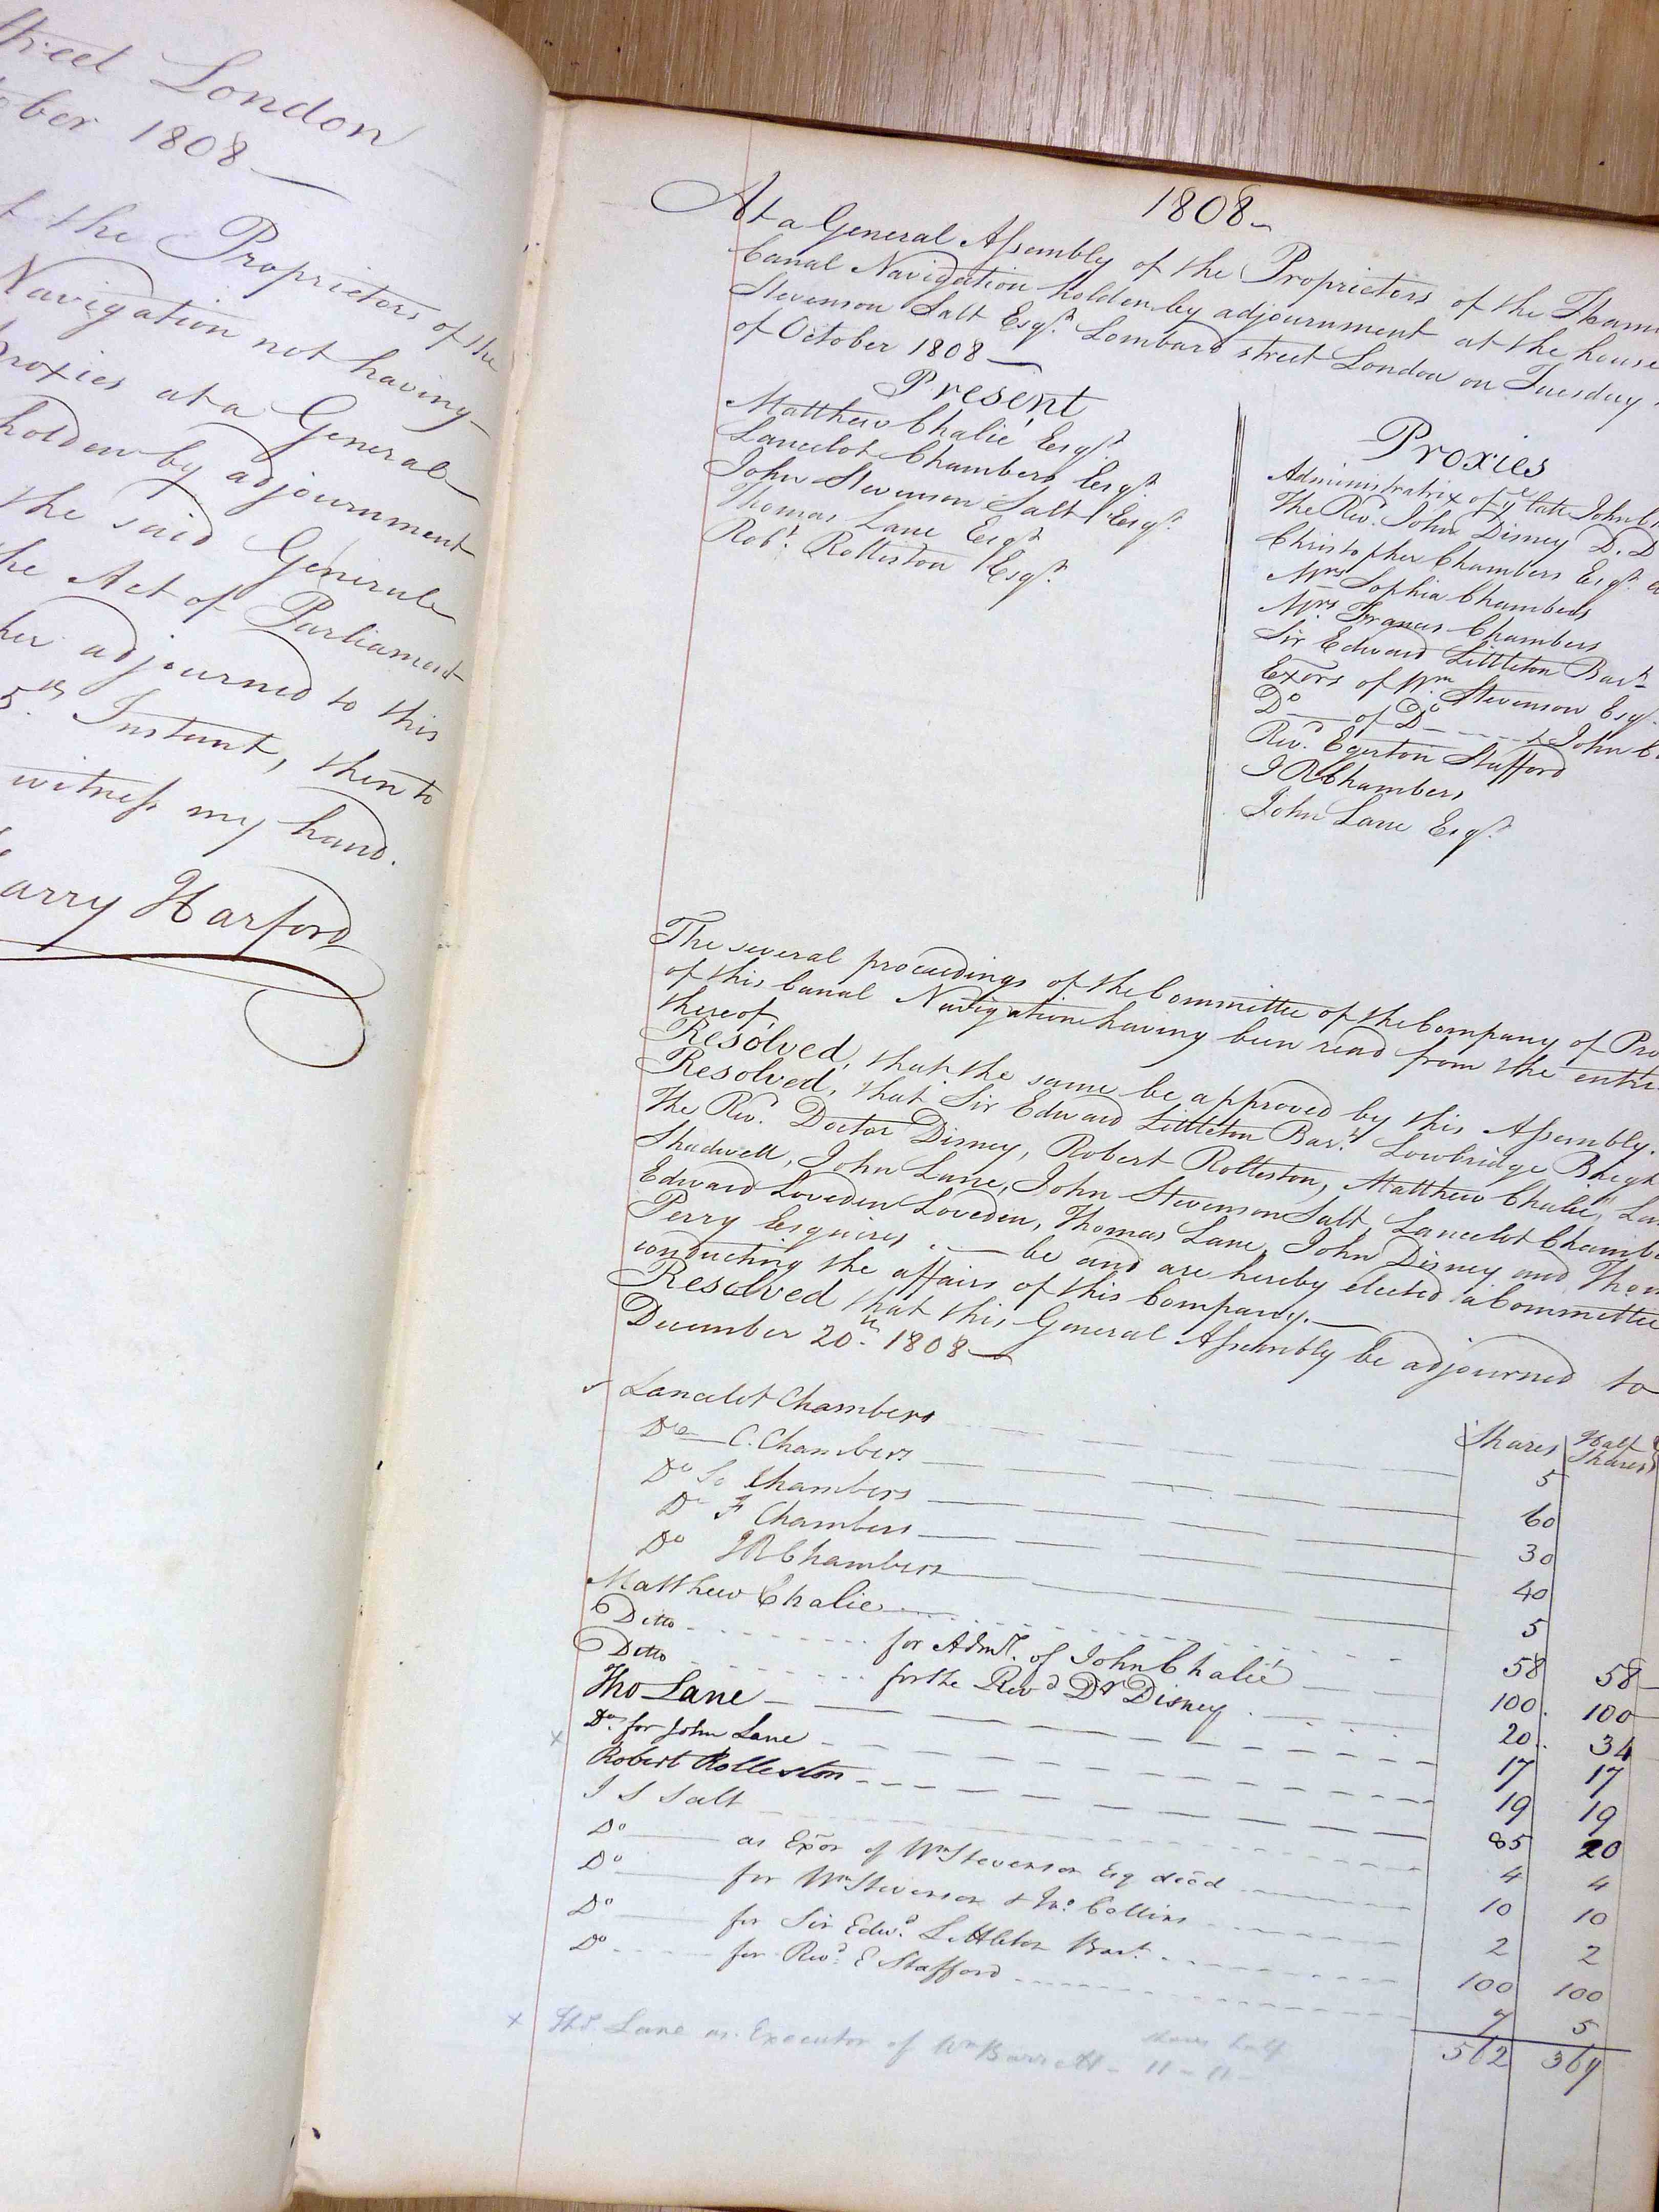 treet London
ober 1808
the Proprietors of the
Navigation not having
roxies at a General
holden by adjournment
the said General
he Act of Parliament
her adjourned to this
5th Instant, then to
witness my hand.
arry Harford
1808
At a General Assembly of the Proprietors of the Tham
Canal Navigation holden by adjournment at the house
Stevenson Salt Esqr. Lombard street London on Tuesday
of October 1808
Present
Matthew Chalié Esqr.
Lancelot Chambers Esqr.
John Stevenson Salt Esqr.
Thomas Lane Esqr
Robt. Rolleston Esqr.
Proxies
Administratrix of ye late John Ch
The Revd. John Disney D. D
Christopher Chambers Esqr.
Mrs Sophia Chambers
Mrs Frances Chambers
Sir Edward Littleton Bart
Exors of Wm. Stevenson Esqr.
Do of Do & John C
Revd. Egerton Stafford
I R Chambers
John Lane Esqr.
The several proceedings of the Committee of the Company of Pro
of this Canal Navigation having been read from the entri
thereof,
Resolved, that the same be approved by this Assembly.
Resolved, that Sir Edward Littleton Bart. Lowbridge Bright
The Revd. Doctor Disney, Robert Rolleston, Matthew Chalié, Lan
Shadwell, John Lane, John Stevenson Salt, Lancelot Chambe
Edward Loveden Loveden, Thomas Lane, John Disney and Thom
Perry Esquires. — be and are hereby elected a Committee
conducting the affairs of this Company.
Resolved that this General Assembly be adjourned to
December 20th. 1808
Shares Half Shares
Lancelot Chambers 5
Do C. Chambers 60
Do So Chambers 30
Do F Chambers 40
Do I R Chambers 5
Matthew Chalie 58 58
Ditto for Admx. of John Chalié 100 100
Ditto for the Revd Dr Disney 20 34
Tho Lane 17 17
Do. for John Lane 19 19
x Robert Rolleston 85 20
I S Salt 4 4
Do as Exor of Wm Stevenson Esq decd 10 10
Do for Wm Stevenson & Jno. Collins 2 2
Do for Sir Edwd. Littleton Bart. 100 100
Do for Revd. E Stafford 7 5
562 369
shares half
x Thos. Lane as Executor of Wm Barrett - 11 - 11 -